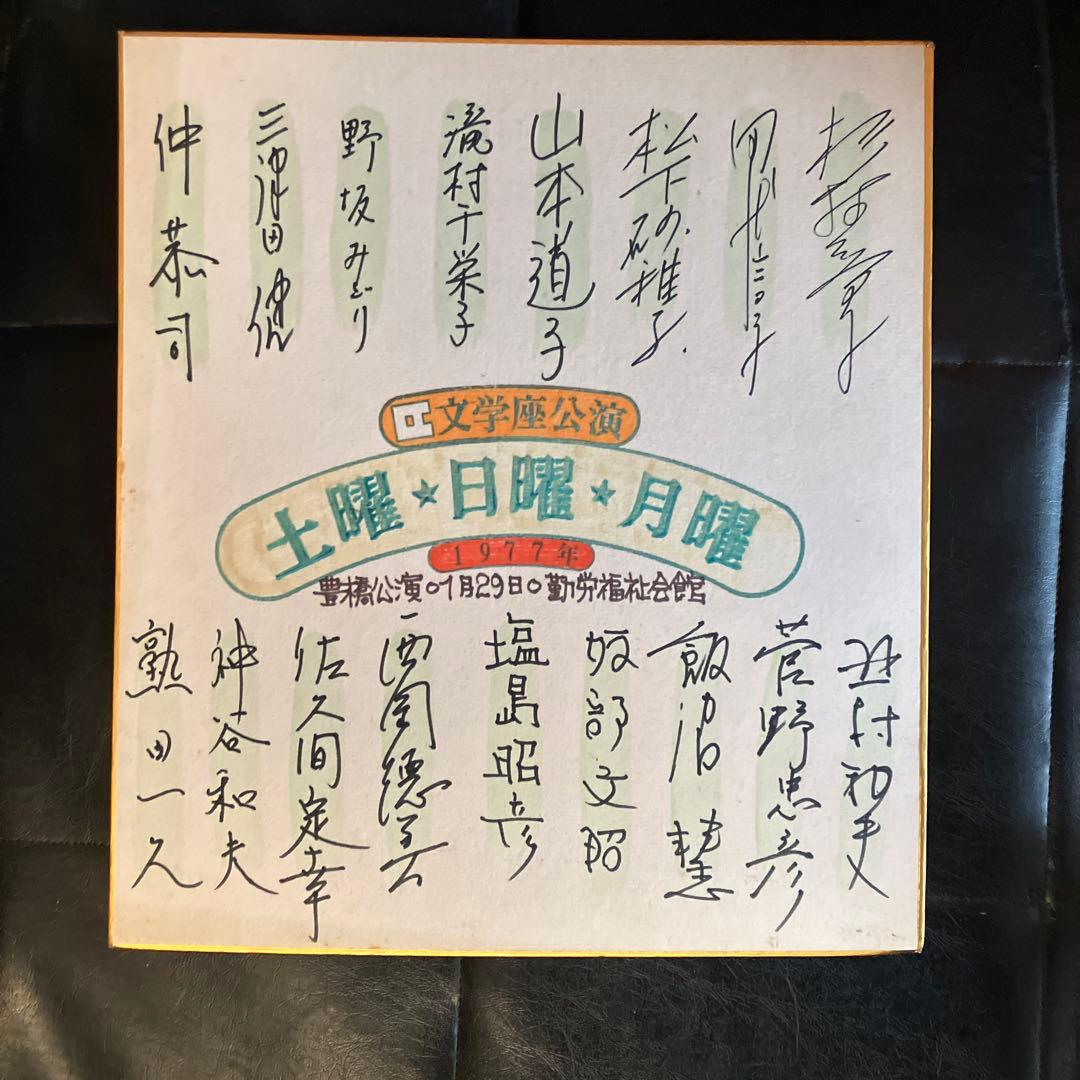 杉村春子
松下砂稚子
山本道子
滝村千栄子
野坂みどり
三津田健
仲恭司
文学座公演
土曜★日曜★月曜
1977年
豊橋公演○1月29日○勤労福祉会館
北村和夫
菅野忠彦
飯沼慧
坂部文昭
塩島昭彦
西岡徳美
佐久間定幸
神谷和夫
熱田一久